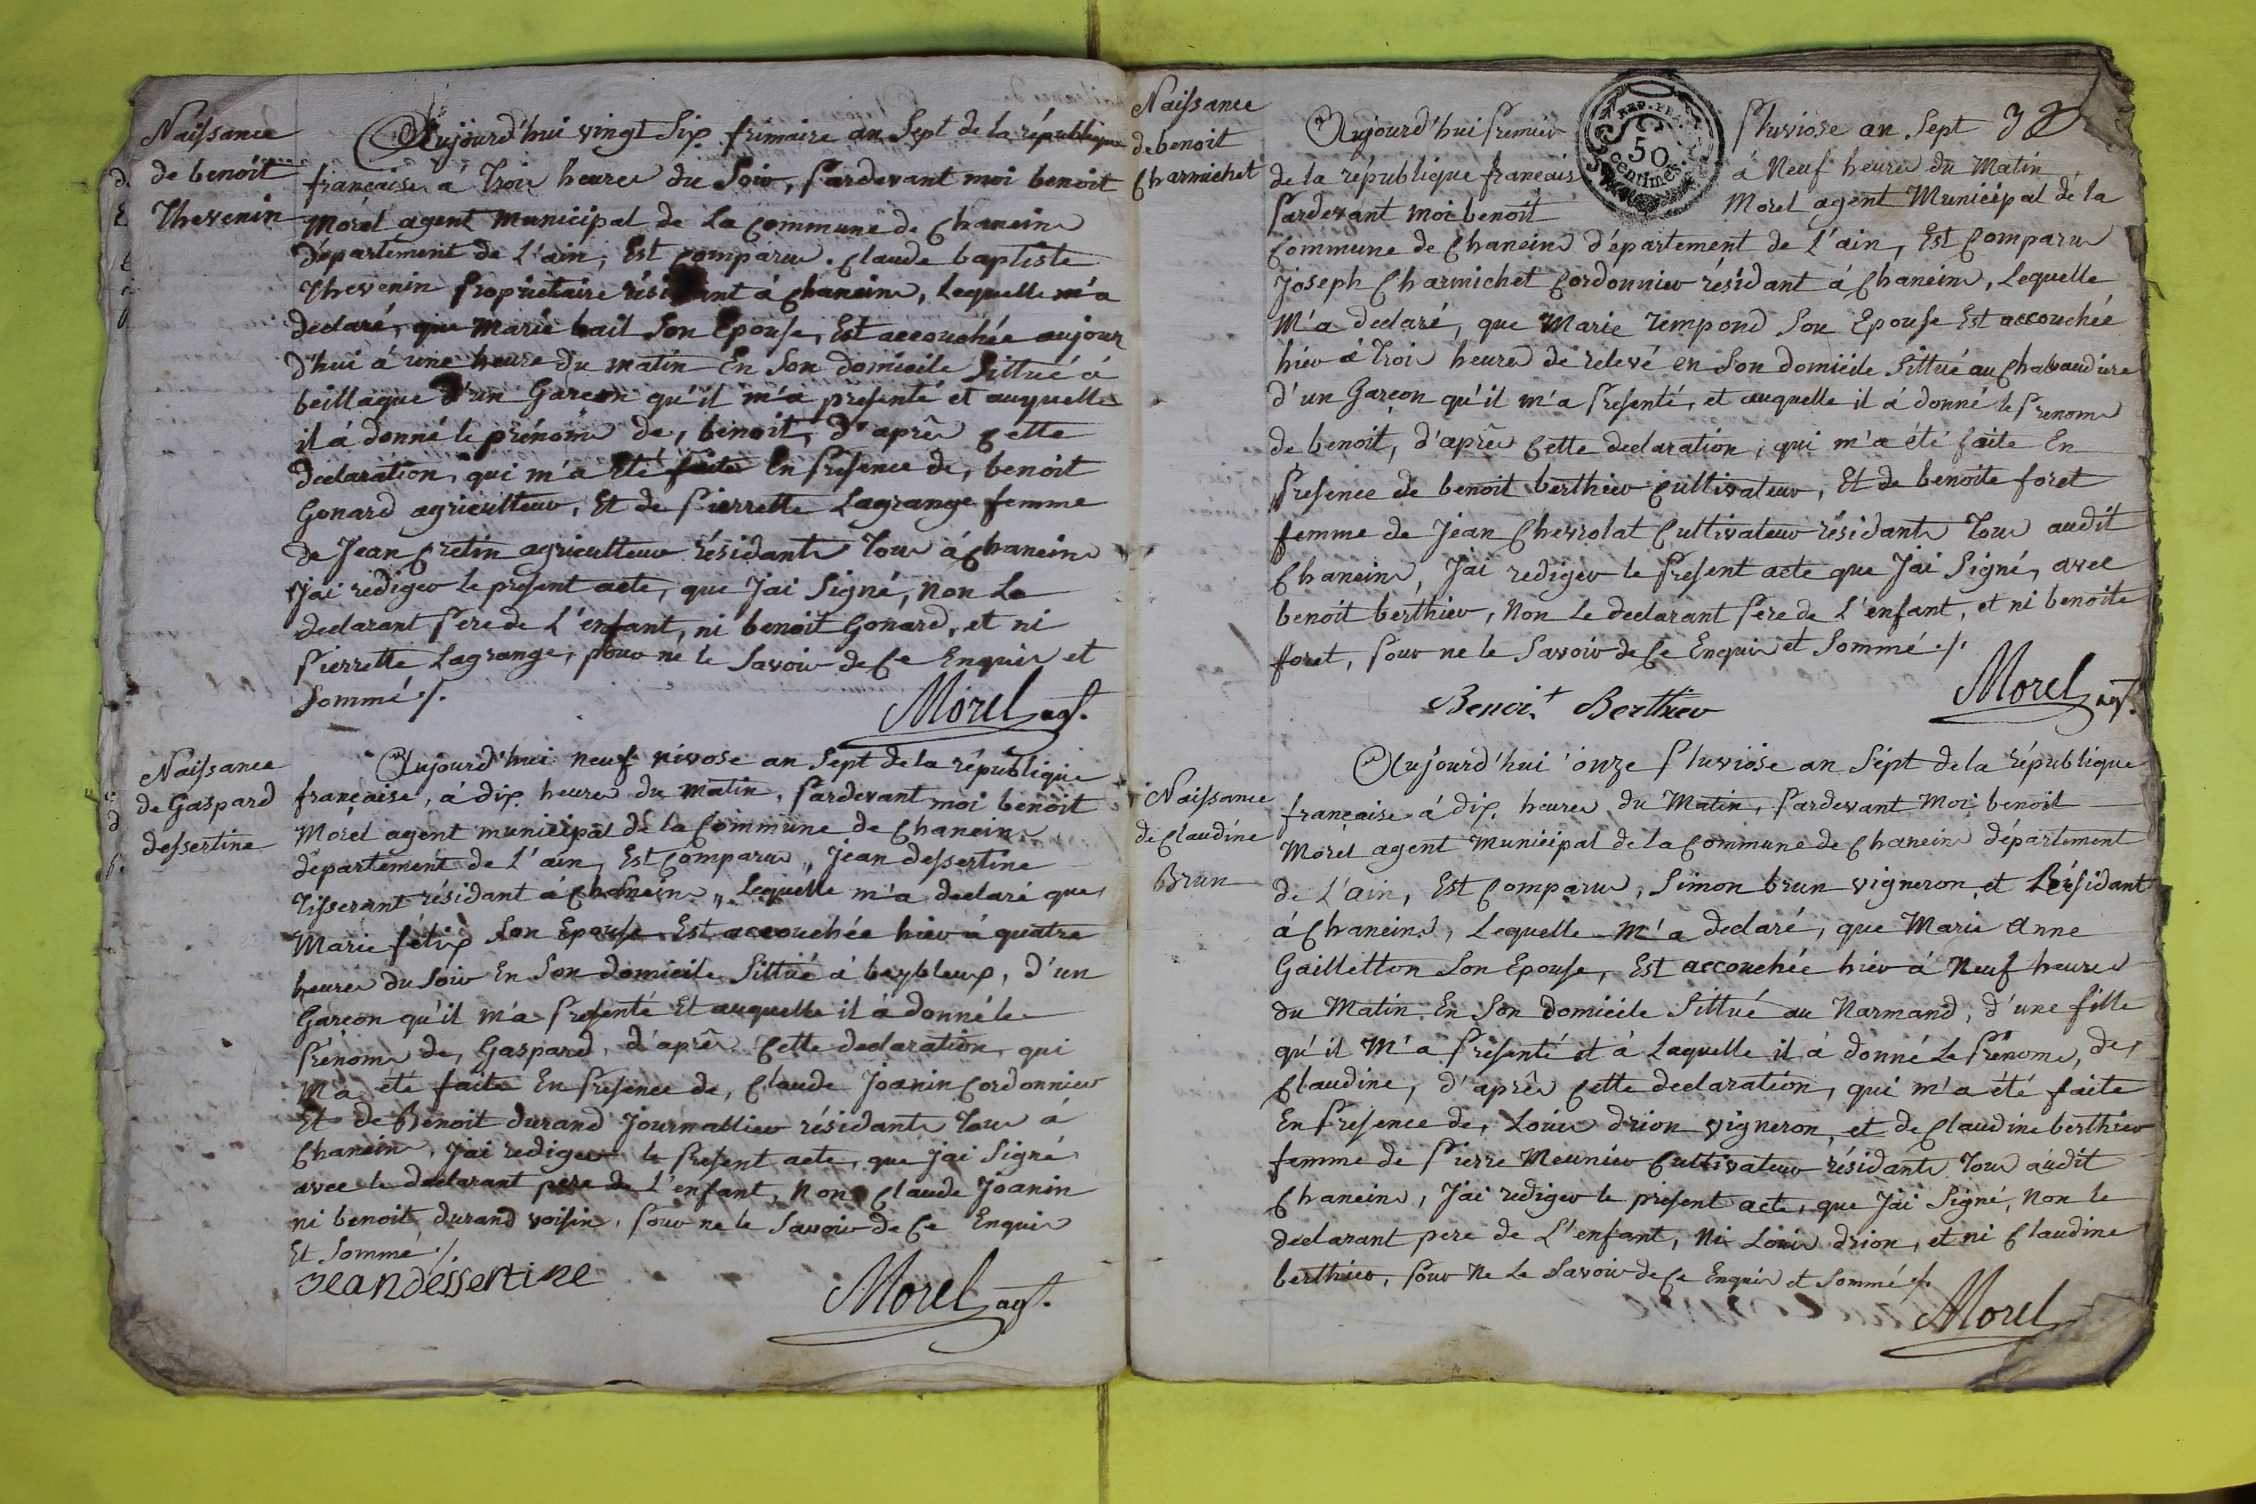 Naissance
de benoit
Thevenin
Aujourd'hui vingt Six frimaire an Sept de la république
française à Trois heures du Soir, Pardevant moi benoit
Morel agent Municipal de La Commune de Chaneins
département de L'ain, Est comparu. Claude baptiste
Thevenin Propriétaire résidant à Chaneins, Lequelle m'a
declaré, que Marie bail Son Epouse, Est accouchée aujour
d'hui à une heure du matin En Son domicile Sittué à
beillague d'un Garçon qu'il m'a présenté et auquelle
il à donné le prénom de, benoit, d'après Cette
declaration, qui m'a été faite En Présence de, benoit
Gonard agriculteur, Et de Pierrette Lagrange femme
de Jean Cretin agriculteur résidants Tous à Chaneins
J'ai rediger le présent acte, que J'ai Signé, Non Le
declarant Pere de L'enfant, ni benoit Gonard, et ni
Pierrette Lagrange, pour ne le Savoir de Ce Enquis et
Sommé ./.
Morel agt.
Naissance
de Gaspard
dessertine
Aujourd'hui neuf nivose an Sept de la république
française, à dix heures du matin, Pardevant moi benoit
Morel agent municipal de la Commune de Chaneins
département de L'ain, Est Comparu, Jean dessertine
Tisserant résidant à Chaneins, Lequelle m'a declaré que
Marie félix Son Epouse Est accouchée hier à quatre
heures du Soir En Son domicile Sittué à beybleux, d'un
Garçon qu'il m'a Présenté Et auquelle il à donné le
Prénom de, Gaspard, d'après Cette declaration, qui
m'a été faite En Présence de, Claude Joanin Cordonnier
Et de Benoit durand Journallier résidants Tous à
Chaneins, J'ai rediger le Présent acte, que j'ai Signé
avec le declarant pere de L'enfant, Non Claude Joanin
ni benoit durand voisin, Pour ne le Savoir de Ce Enquis
Et Sommé ./.
Jean dessertine
Morel agt.
Naissance
de benoit
Charmichet
Aujourd'hui Premier Pluviose an Sept
REP. FRA.
50
centimes
de la république français à Neuf heures du Matin
Pardevant moi benoit Morel agent Municipal de la
Commune de Chaneins département de L'ain, Est Comparu
Joseph Charmichet Cordonnier résidant à Chaneins, Lequelle
M'a declaré, que Marie Tempond Son Epouse Est accouchée
hier à Trois heures de relevé en Son domicile Sittué au
d'un Garçon qu'il m'a Présenté, et auquelle il à donné le Prenom
de benoit, d'après Cette declaration, qui m'a été faite En
Présence de benoit berthier Cultivateur, Et de benoite foret
femme de Jean Chevrolat Cultivateur résidants Tous audit
Chaneins, J'ai rediger le Présent acte que J'ai Signé, avec
benoit berthier, Non Le declarant Pere de L'enfant, et ni benoite
foret, Pour ne le Savoir de Ce Enquis et Sommé ./.
Benoit Berthier
Morel agt.
Naissance
de Claudine
Brun
Aujourd'hui onze Pluviose an Sept de la république
française à dix heures du Matin, Pardevant Moi benoit
Morel agent Municipal de la Commune de Chaneins département
de L'ain, Est Comparu, Simon brun vigneron et Résidant
à Chaneins, Lequelle M'a declaré, que Marie Anne
Gailletton Son Epouse, Est accouchée hier à Neuf heures
du Matin En Son domicile Sittué au Narmand, d'une fille
qu'il M'a Présenté et à Laquelle il à donné Le Prénom, de
Claudine, d'après Cette declaration, qui m'a été faite
En Présence de, Louis drion vigneron, et de Claudine berthier
femme de Pierre Meunier Cultivateur résidants Tous audit
Chaneins, J'ai rediger le présent acte, que J'ai Signé, Non le
declarant pere de L'enfant, Ni Louis drion, et ni Claudine
berthier, Pour Ne Le Savoir de Ce Enquis et Sommé ./.
Morel